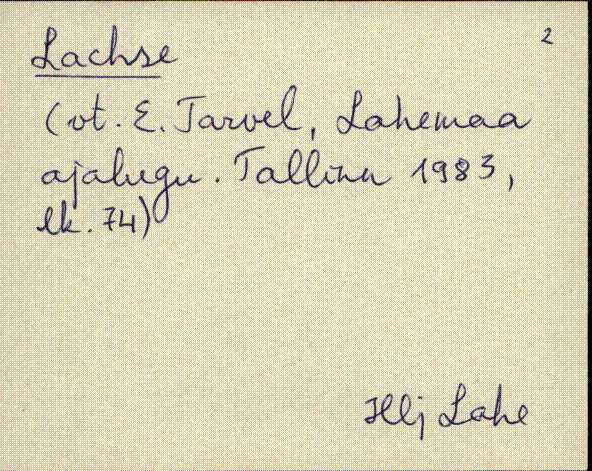 2
Lachse
(vt. E. Tarvel, Lahemaa
ajalugu. Tallinn 1983,
lk. 74)
Hlj Lahe